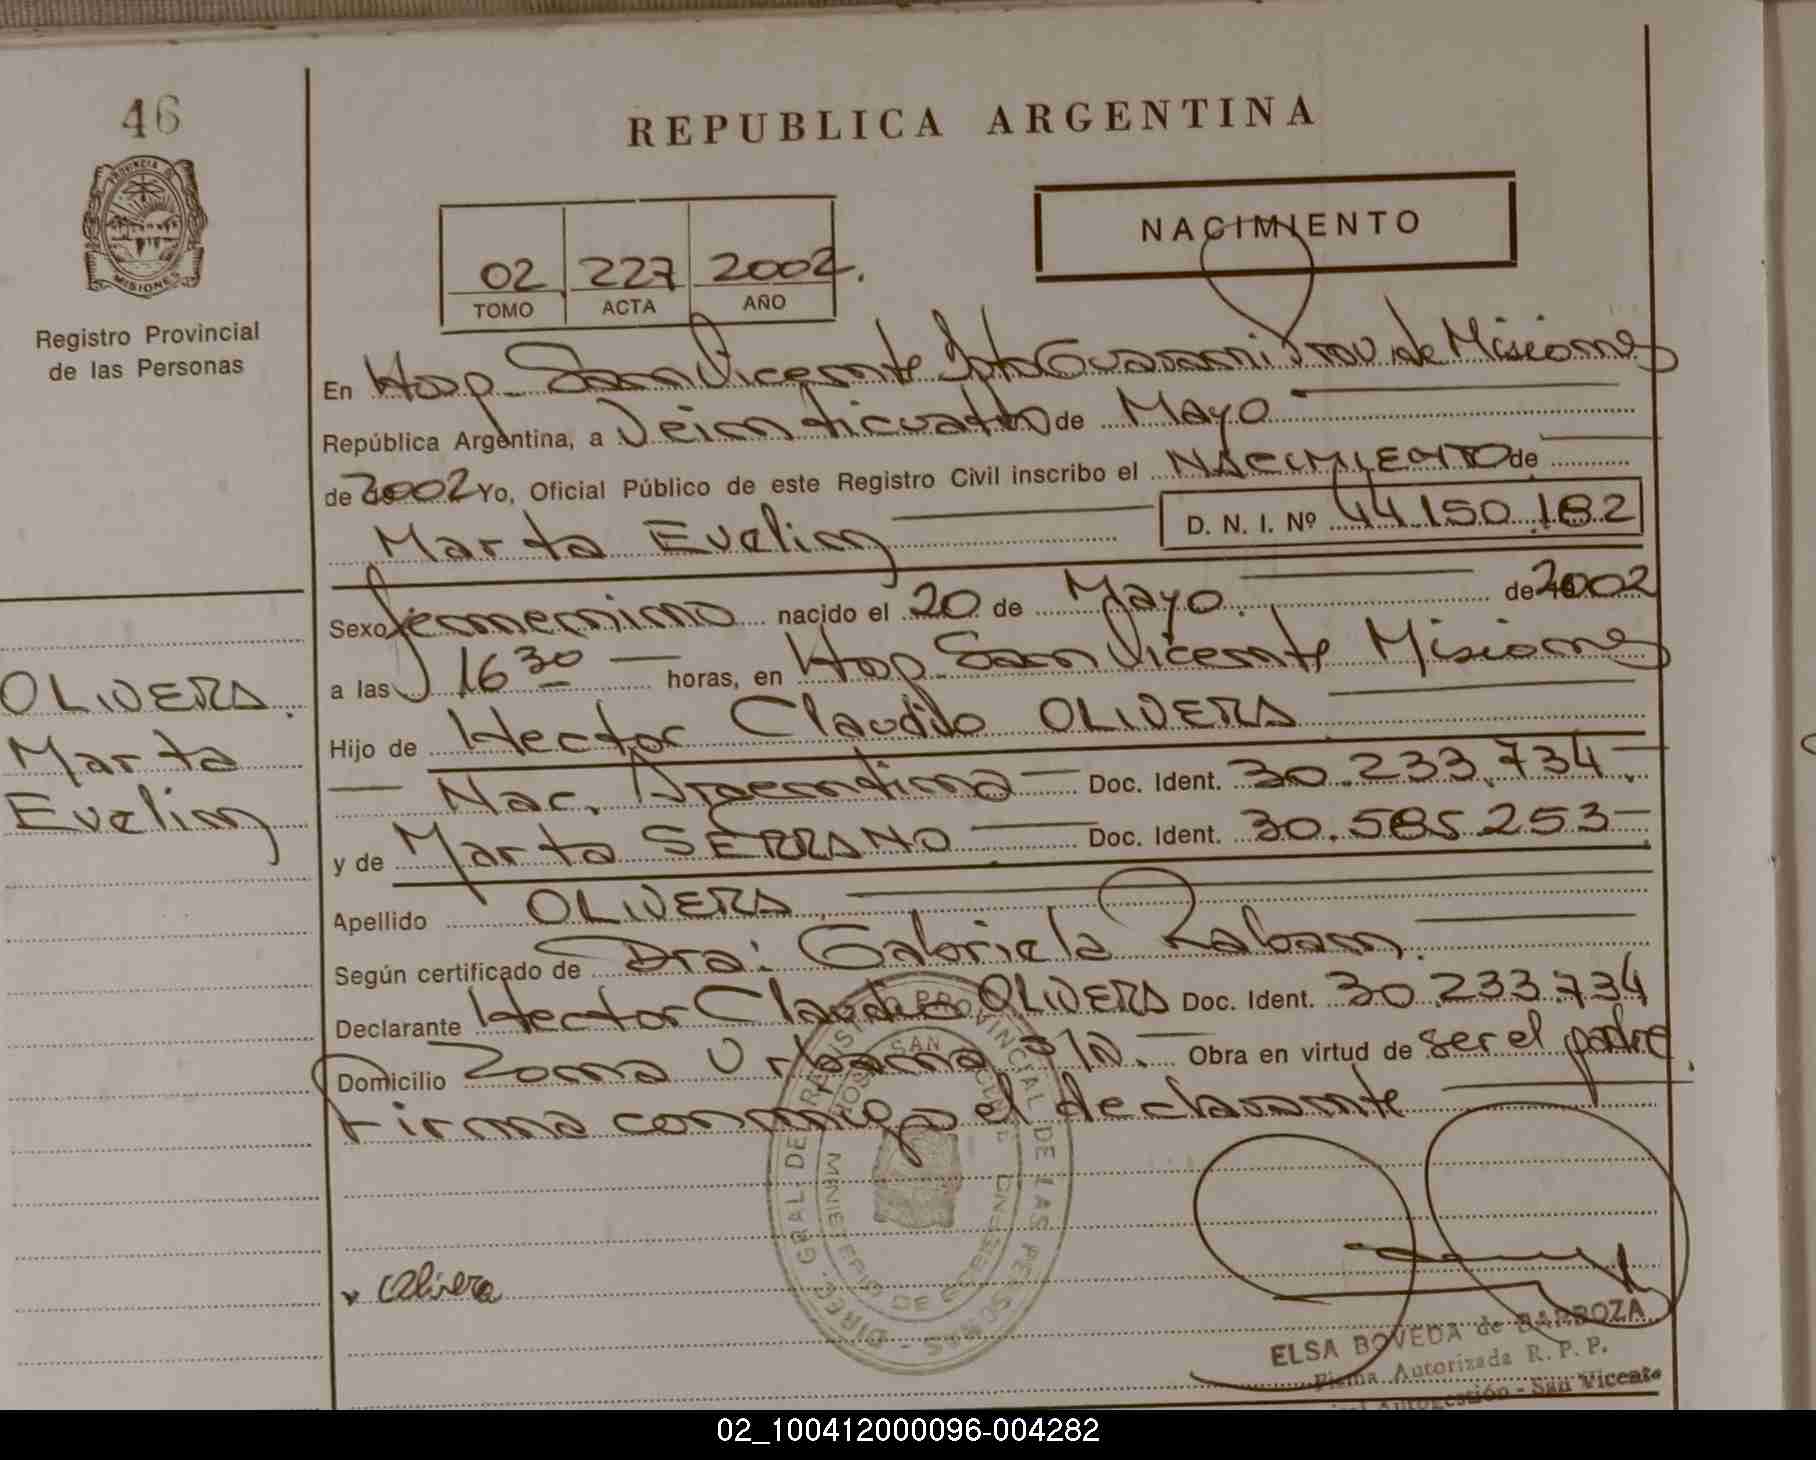 46
PROVINCIA DE
MISIONES
Registro Provincial
de las Personas
OLIVERA.
Marta
Evelin
REPUBLICA ARGENTINA
NACIMIENTO
02 227 2002.
TOMO ACTA AÑO
En Hosp. San Vicente Dpto Guarani Prov. de Misiones
República Argentina, a Veinticuatro de Mayo
de 2002 Yo, Oficial Público de este Registro Civil inscribo el NACIMIENTO de
Marta Evelin D. N. I. Nº 44.150.182
Sexo femenino nacido el 20 de Mayo. de 2002
a las 16 30 horas, en Hosp. San Vicente Misiones
Hijo de Hector Claudio OLIVERA
Nac. Argentina Doc. Ident. 30.233.734.
y de Marta SERRANO Doc. Ident. 30.585.253
Apellido OLIVERA
Según certificado de Dra: Gabriela Laban.
Declarante Hector Claudio OLIVERA Doc. Ident. 30.233.734
Domicilio Zona Urbana S/N. Obra en virtud de ser el padre.
Firma conmigo el declarante
DIREC. GRAL. DE REGISTRO PROVINCIAL DE LAS PERSONAS
MINISTERIO DE
HOSP. SAN VICENTE
Olivera
ELSA BOVEDA de BARBOZA
Firma Autorizada R. P. P.
Autogestión - San Vicente
02_100412000096-004282